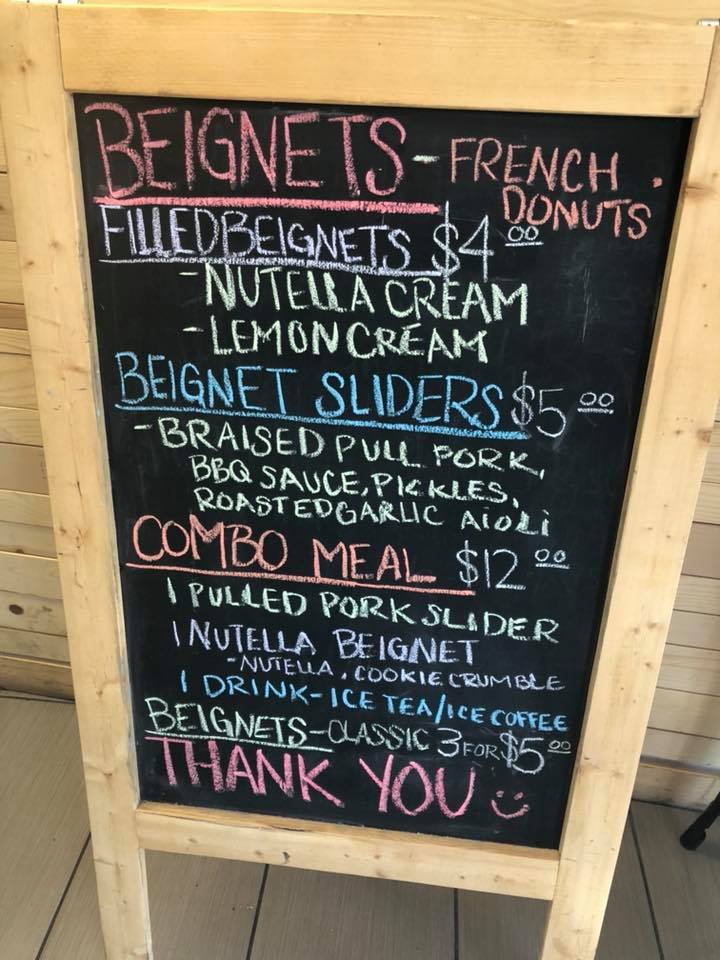 BEIGNETS - FRENCH
DONUTS
FILLED BEIGNETS $4.00
- NUTELLA CREAM
- LEMON CREAM
BEIGNET SLIDERS $5.00
- BRAISED PULL PORK,
BBQ SAUCE, PICKLES,
ROASTED GARLIC AIOLI
COMBO MEAL $12.00
1 PULLED PORK SLIDER
1 NUTELLA BEIGNET
- NUTELLA, COOKIE CRUMBLE
1 DRINK - ICE TEA/ICE COFFEE
BEIGNETS - CLASSIC 3 FOR $5.00
THANK YOU